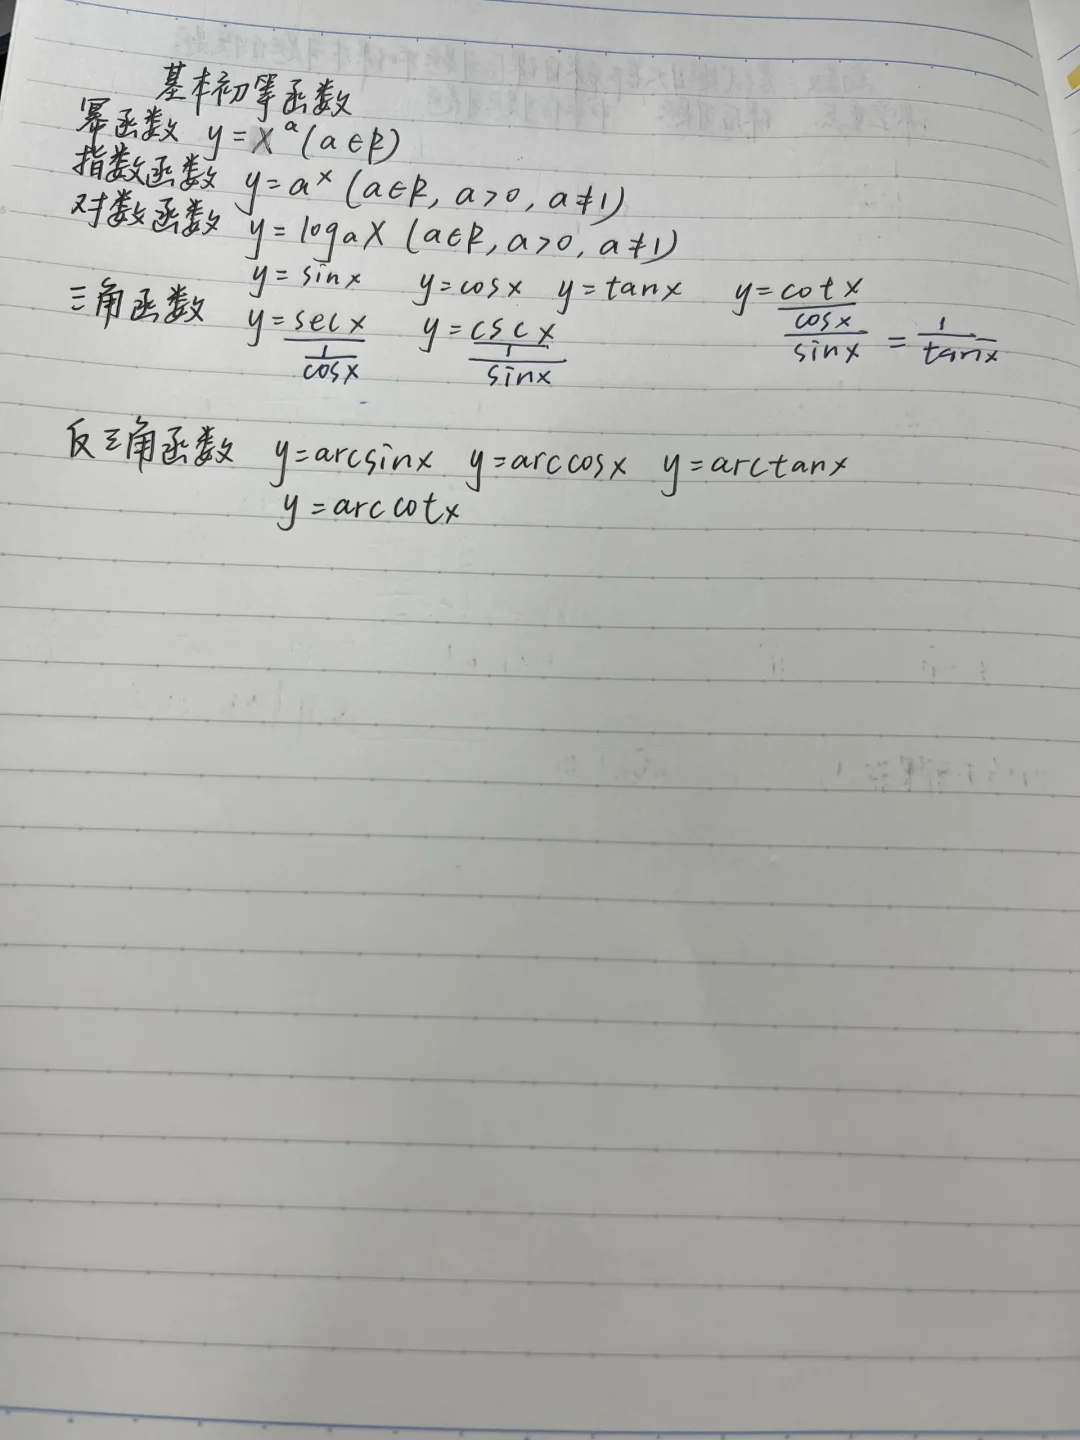 基本初等函数
幂函数 y=xᵃ(a∈R)
指数函数 y=aˣ (a∈R, a>0, a≠1)
对数函数 y=logₐx (a∈R, a>0, a≠1)
y=sinx y=cosx y=tanx y=cotx
三角函数 y=secx y=cscx cosx/sinx = 1/tanx
1/cosx 1/sinx
反三角函数 y=arcsinx y=arccosx y=arctanx
y=arccotx